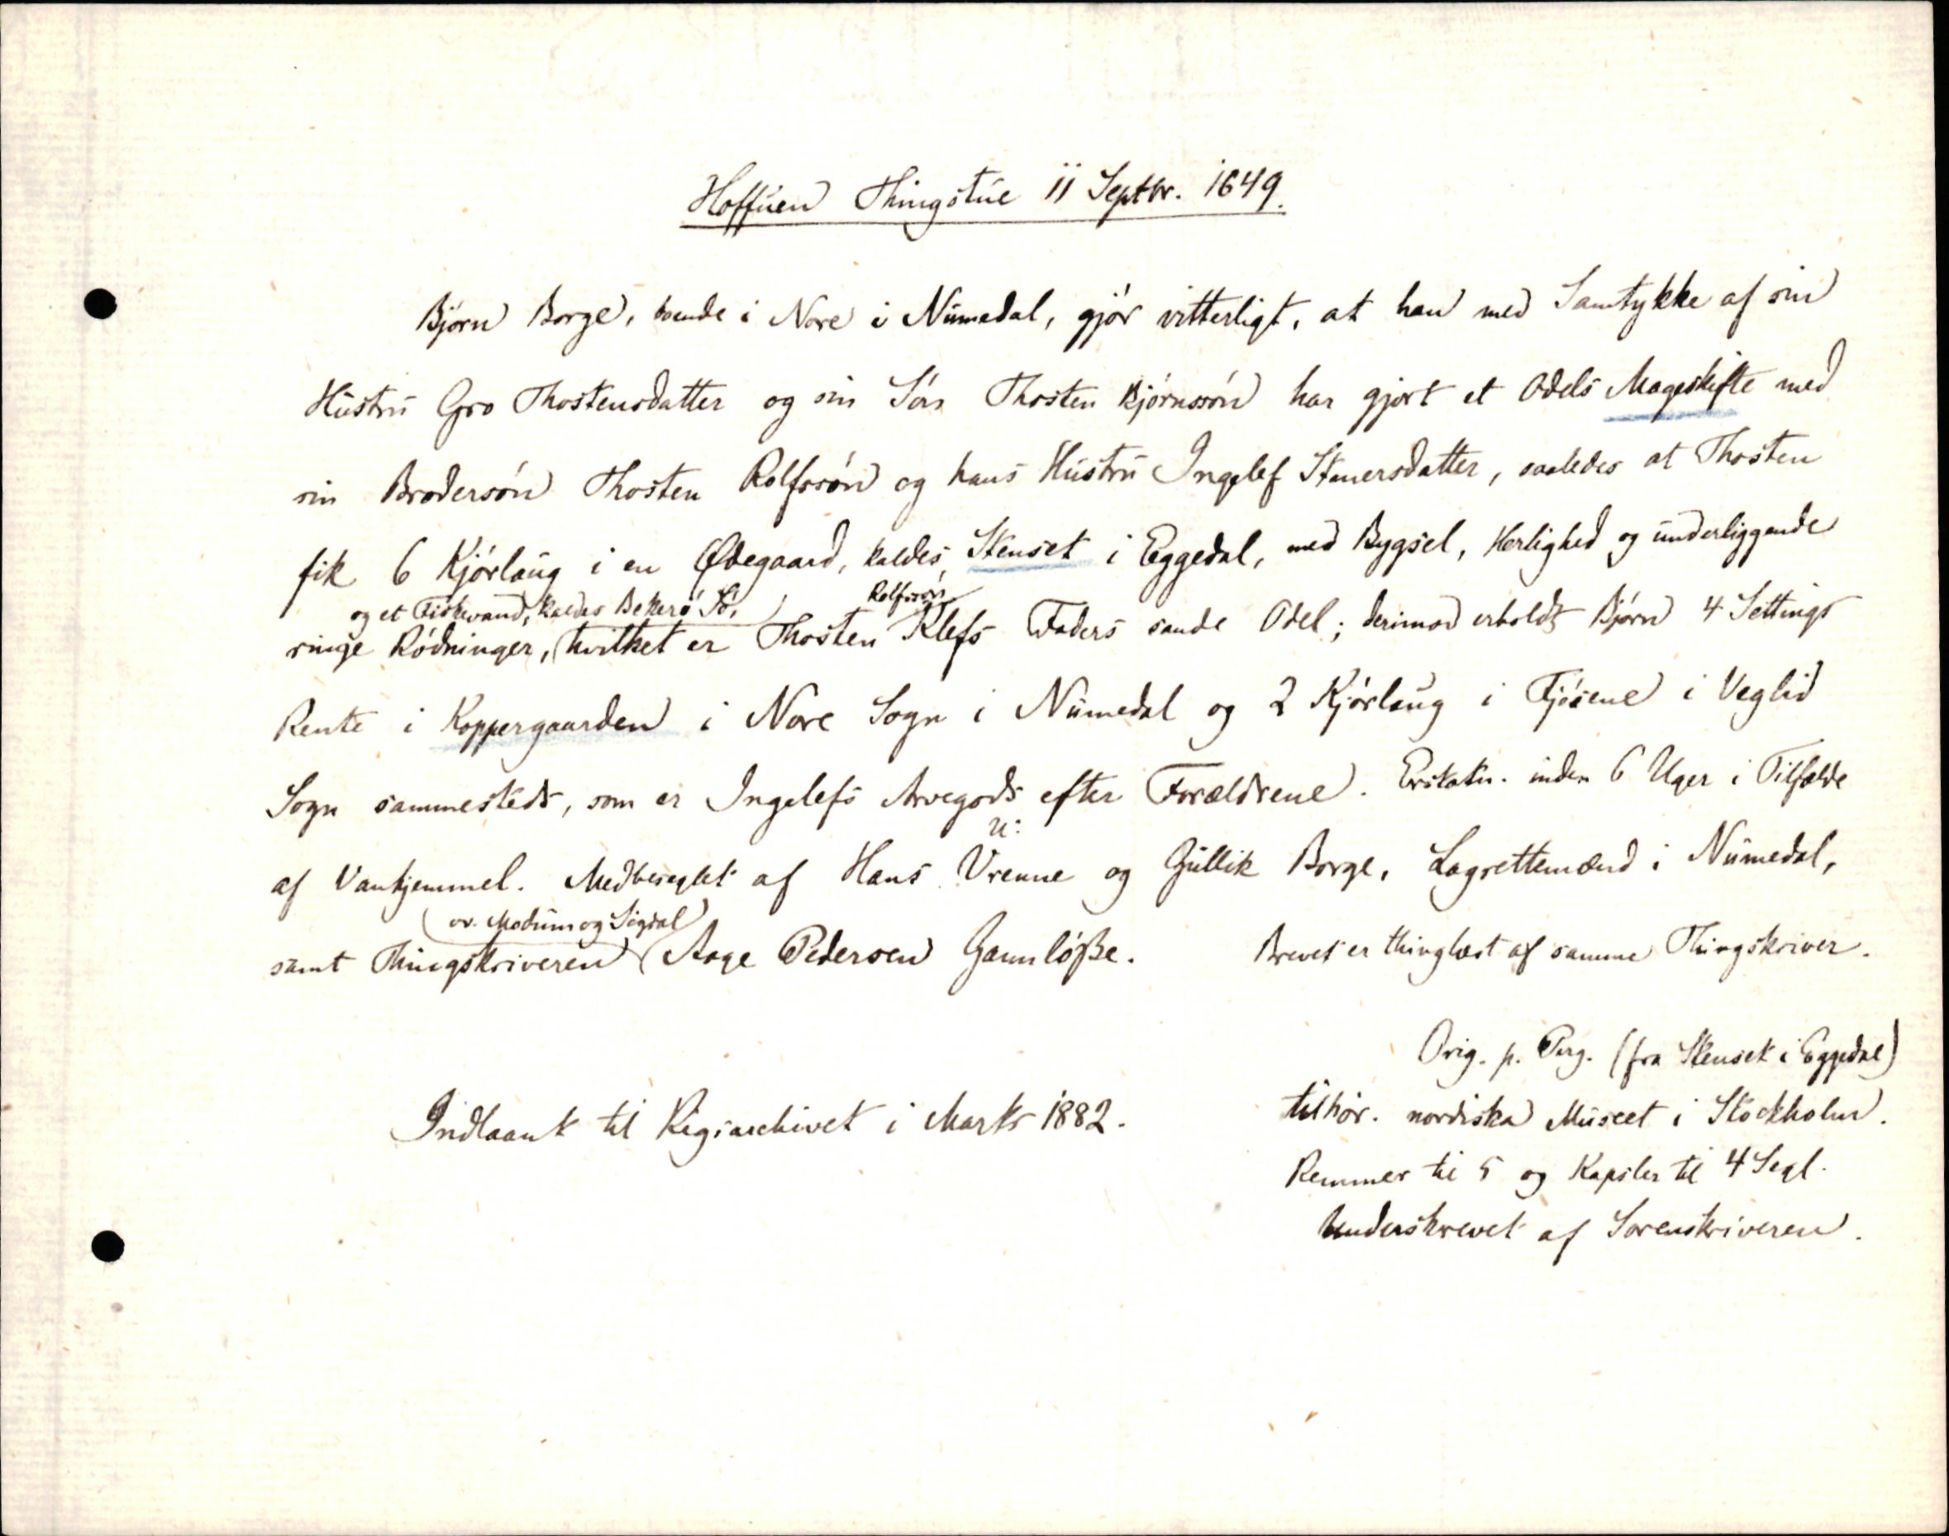 Hoffuen Thingstue 11 Septbr. 1649.
Bjørn Borge, boende i Nore i Numedal, gjør vitterligt, at han med Samtykke af sin
Hustru Gro Thostensdatter og sin Søn Thosten Bjørnssøn har gjort et Odels Mageskifte med
sin Brodersøn Thosten Rolfssøn og hans Hustru Ingelef Stenersdatter, saaledes at Thosten
fik 6 Kjørlaug i en Ødegaard, kaldes Stenset i Eggedal, med Bygsel, Herlighed og underliggende
og et Fiskevand, kaldes Bekerø Sø, Rolfssøn
ringe Rødninger, hvilket er Thosten Klefs Faders sande Odel; derimod erholdt Bjørn 4 Settings
Rente i Koppergaarden i Nore Sogn i Numedal og 2 Kjørlaug i Fjøsene i Veglid
Sogn sammesteds, som er Ingelefs Arvegods efter Forældrene. Erstatn. inden 6 Uger i Tilfælde
af Vanhjemmel. Medbeseglet af Hans Vrenne og Gullik Borge, Lagrettemænd i Numedal,
ov. Modum og Sigdal
samt Thingskriveren Aage Pedersen Gamløße. Brevet er thinglæst af samme Thingskriver.
Orig. p. Perg. (fra Stenset i Eggedal)
Indlaant til Rigsarchivet i Marts 1882.
tilhør. nordiska Museet i Stockholm.
Remmer til 5 og Kapsler til 4 Segl.
Underskrevet af Sorenskriveren.